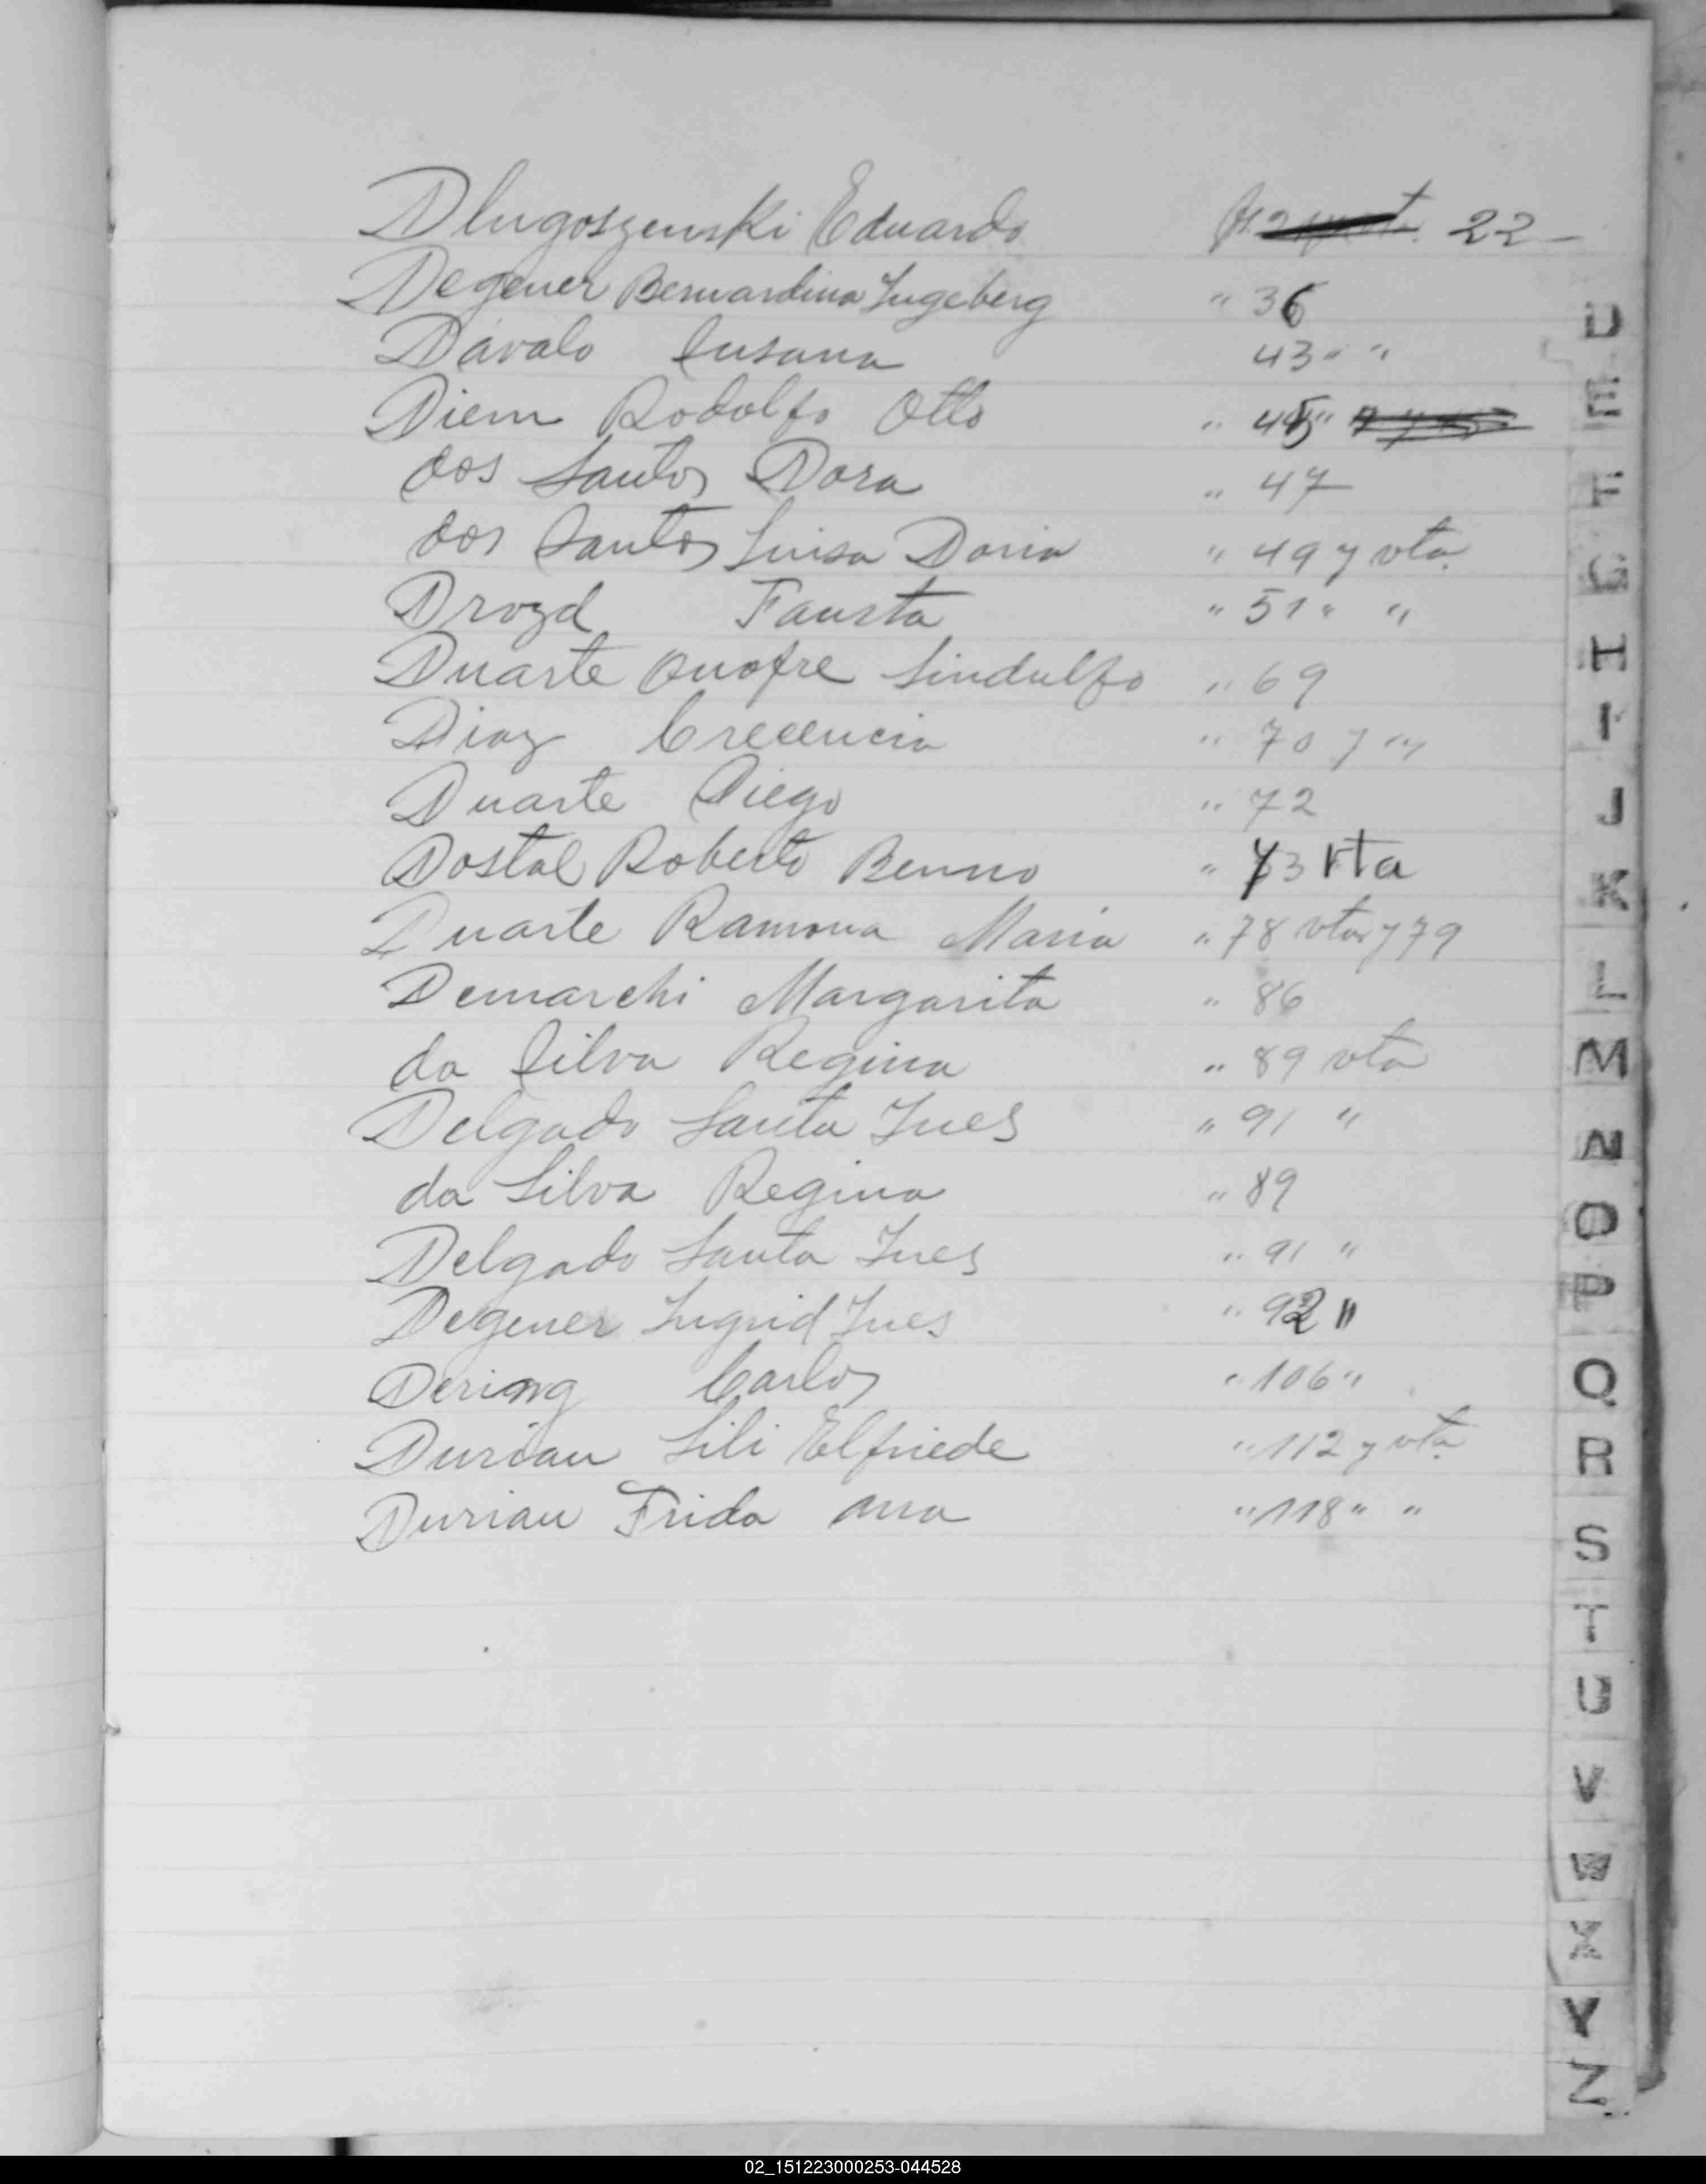 Dlugoszenski Eduardo fs. 22
Degener Bernardina Ingeberg " 36
Dávalo Susana 43 " "
Diem Rodolfo Otto " 45 "
dos Santos Dora " 47
dos Santos Luisa Doria " 49 y vta.
Drozd Fausta " 51 " "
Duarte Onofre Sindulfo " 69
Diaz Crecencia " 70 y "
Duarte Diego " 72
Dostal Roberto Benno " 73 vta
Duarte Ramona Maria " 78 vta y 79
Demarchi Margarita " 86
da Silva Regina " 89 vta
Delgado Santa Ines " 91 "
da Silva Regina " 89
Delgado Santa Ines " 91 "
Degener Ingrid Ines " 92 "
Dering Carlos " 106 "
Durian Lili Elfriede " 112 y vta.
Durian Frida Ana " 118 " "
D
E
F
G
H
I
J
K
L
M
N
O
P
Q
R
S
T
U
V
W
X
Y
Z
02_151223000253-044528